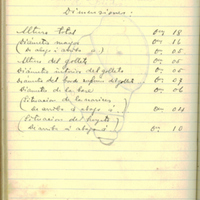 Dimensiones:
Altura total 0m 18
Diámetro mayor 0m 16
(de abajo á arriba) 0m 05
Altura del gollete 0m 05
Diámetro interior del gollete 0m 05
Diámetro del borde superior del gollete 0m 07
Diámetro de la base 0m 06
Situacion de la
(de arriba á abajo) 0m
Situacion del
(de arriba á abajo) 0m 10